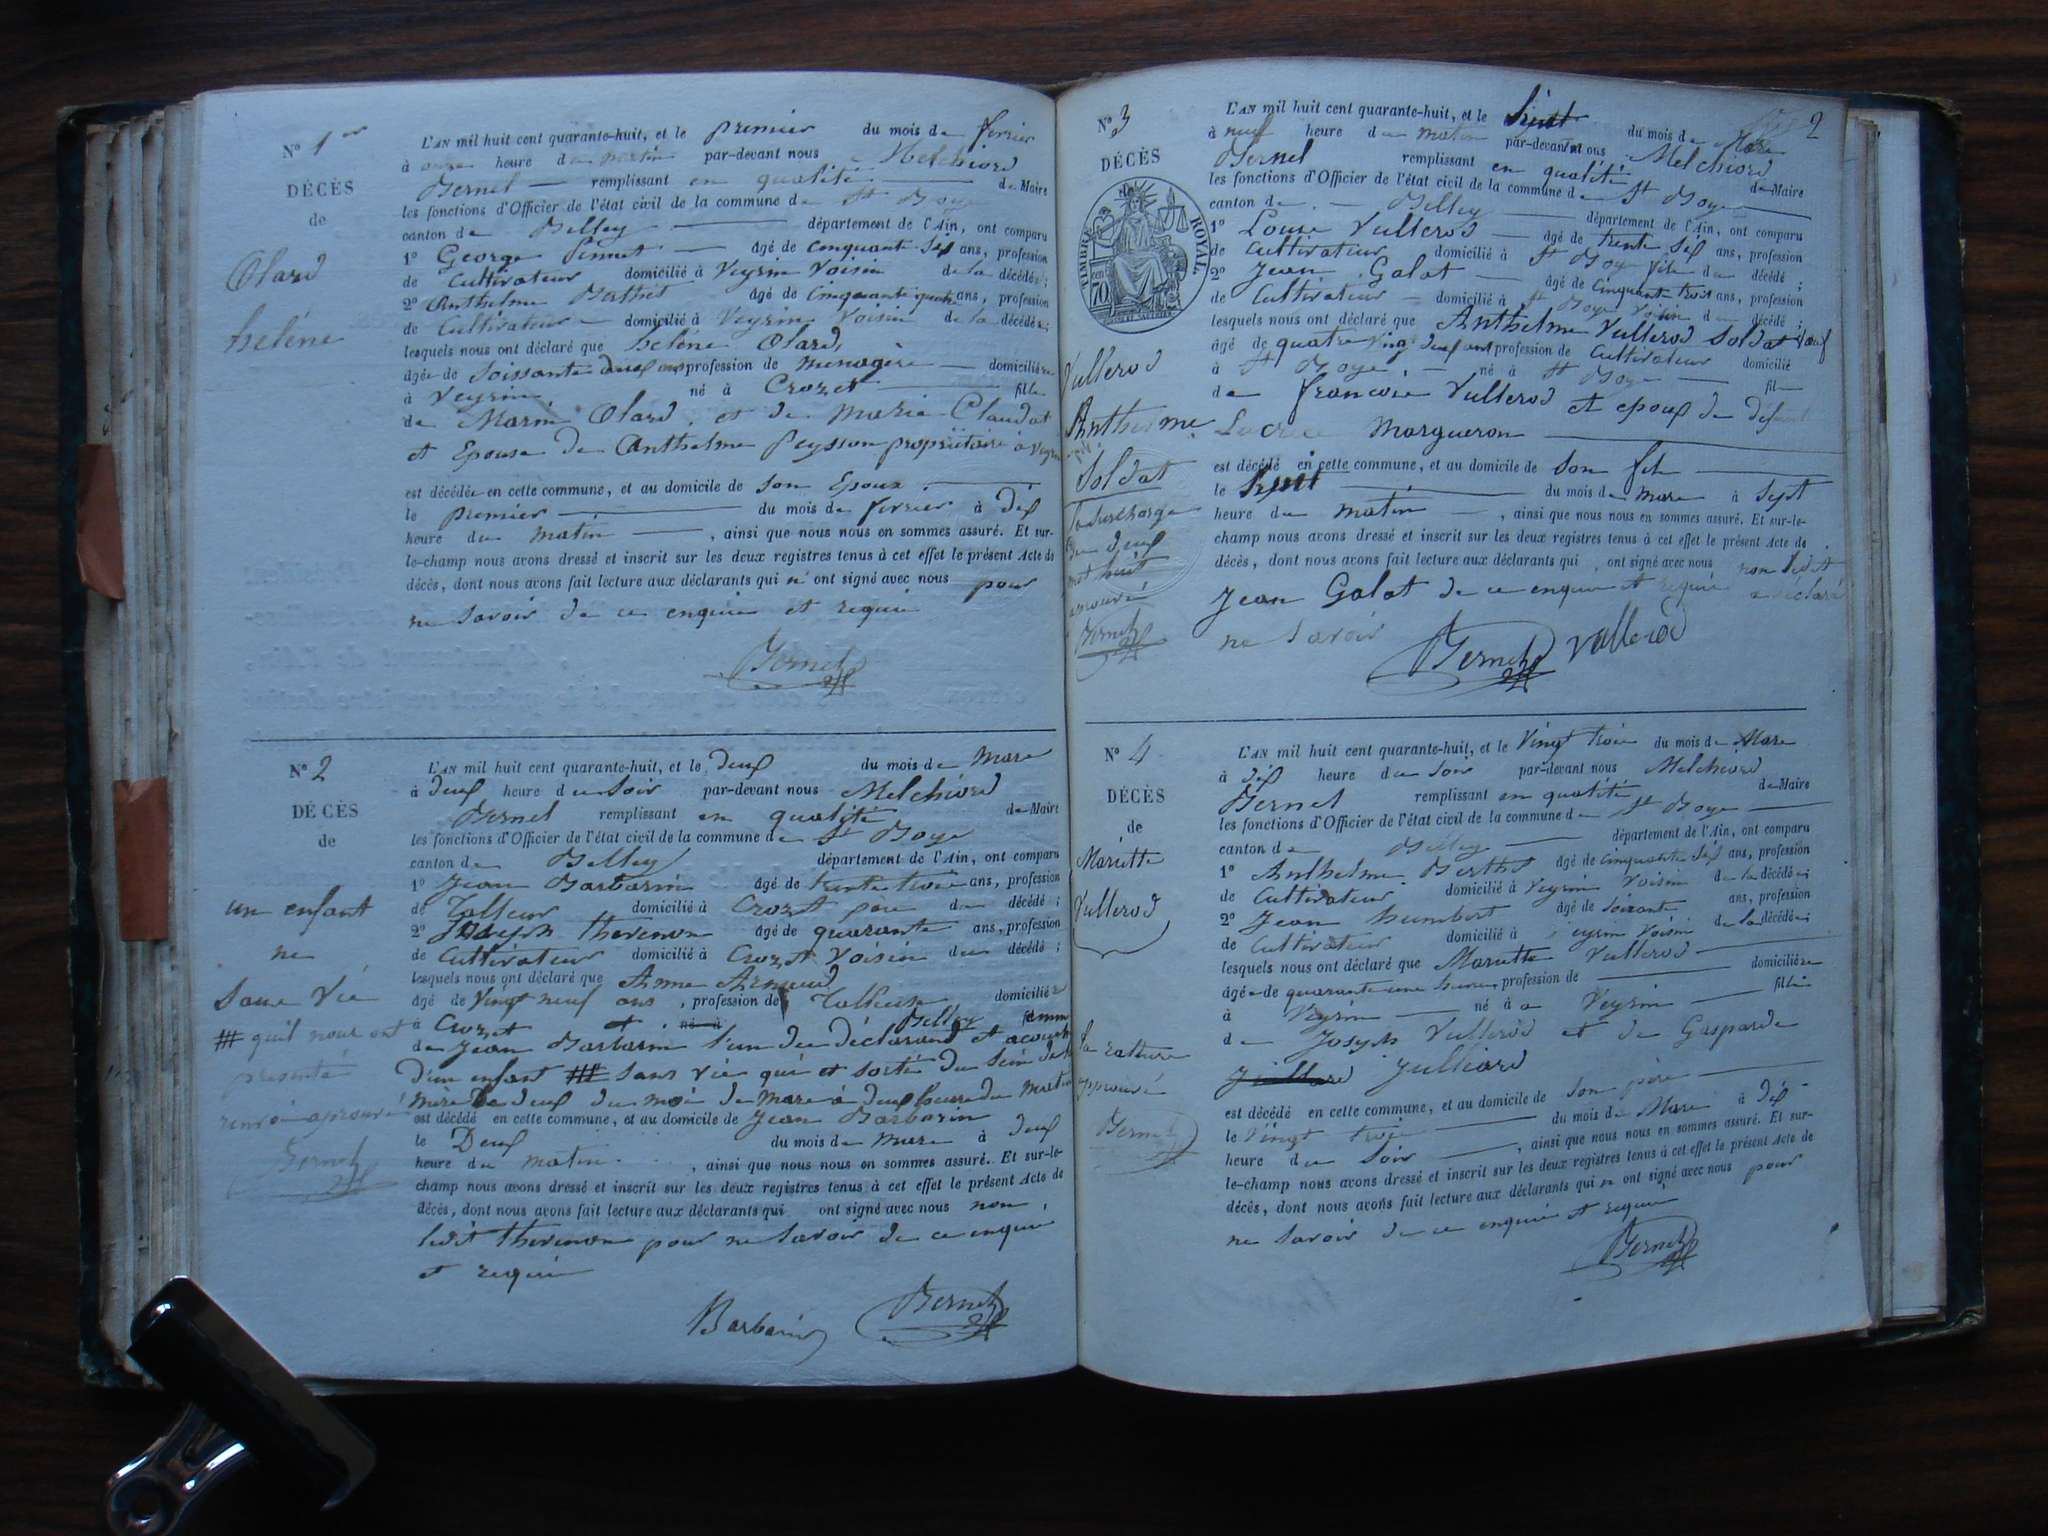 N° 1er
DÉCÈS
de
Olard
helène
L'AN mil huit cent quarante-huit, et le premier du mois de fevrier
à onze heure du matin par-devant nous Melchiord
Bernel remplissant en qualité de Maire
les fonctions d'Officier de l'état civil de la commune de St Boys
canton de Belley département de l'Ain, ont comparu
1° George Pinnet âgé de cinquant six ans, profession
de Cultivateur domicilié à Veyrin Voisin de la décédée;
2° Anthelme Berthet âgé de Cinquante quatre ans, profession
de Cultivateur domicilié à Veyrin Voisin de la décédée;
lesquels nous ont déclaré que helène Olard,
âgée de Soissante deux ans profession de menagère domiciliée
à Veyrin né à Crozet fille
de Marin Olard, et de Marie Claudat
et Epouse de Anthelme Peysson propriétaire à Veyrin
est décédée en cette commune, et au domicile de Son Epoux
le premier du mois de fevrier à dix
heure du matin, ainsi que nous nous en sommes assuré. Et sur-
le-champ nous avons dressé et inscrit sur les deux registres tenus à cet effet le présent Acte de
décès, dont nous avons fait lecture aux déclarants qui n' ont signé avec nous pour
ne Savoir de ce enquie et requie
Bernel
N° 2
DÉCÈS
de
un enfant
ne
Sans Vie
# qu'il nous ont
presenté
renvoi aprouvé
Bernel
L'AN mil huit cent quarante-huit, et le deux du mois de Mars
à deux heure du Soir par-devant nous Melchiord
Bernel remplissant en qualité de Maire
les fonctions d'Officier de l'état civil de la commune de St Boys
canton de Belley département de l'Ain, ont comparu
1° Jean Barbarin âgé de trente trois ans, profession
de Talleur domicilié à Crozet père du décédé;
2° Joseph thevenon âgé de quarante ans, profession
de Cultivateur domicilié à Crozet Voisin du décédé;
lesquels nous ont déclaré que Anne
âgé de Vingt neuf ans, profession de Talleuse domiciliée
à Crozet et né à Belley femme
de Jean Barbarin l'un des déclarant et acouché
d'un enfant # Sans Vie qui est Sortie du Sein de la
mere le deux du mois de Mars à deux heure du Matin
est décédé en cette commune, et au domicile de Jean Barbarin
le Deux du mois de Mars à deux
heure du matin, ainsi que nous nous en sommes assuré. Et sur-le-
champ nous avons dressé et inscrit sur les deux registres tenus à cet effet le présent Acte de
décès, dont nous avons fait lecture aux déclarants qui ont signé avec nous non
ledit thevenon pour ne Savoir de ce enquie
et requie
Barbarin Bernel
2
N° 3
DÉCÈS
de
TIMBRE ROYAL
70
Vullerod
Anthelme
Soldat
La Surcharge
du deux
mot huit
aprouvé
Bernel
L'AN mil huit cent quarante-huit, et le du mois de Mars
à neuf heure du matin par-devant nous Melchiord
Bernel remplissant en qualité de Maire
les fonctions d'Officier de l'état civil de la commune de St Boys
canton de Belley département de l'Ain, ont comparu
1° Louis Vullerod âgé de trente six ans, profession
de Cultivateur domicilié à St Boys fils du décédé;
2° Jean Galat âgé de Cinquant trois ans, profession
de Cultivateur domicilié à St Boys Voisin du décédé;
lesquels nous ont déclaré que Anthelme Vullerod Soldat Veuf
âgé de quatre Vingt deux ans profession de Cultivateur domicilié
à St Boys né à St Boys fil
de francois Vullerod et epoux de defunt
Margueron
est décédé en cette commune, et au domicile de Son fil
le du mois de mars à Sept
heure du matin, ainsi que nous nous en sommes assuré. Et sur-le-
champ nous avons dressé et inscrit sur les deux registres tenus à cet effet le présent Acte de
décès, dont nous avons fait lecture aux déclarants qui ont signé avec nous non ledit
Jean Galat de ce enquie et requie a déclaré
ne Savoir
Bernel Vullerod
N° 4
DÉCÈS
de
Mariette
Vullerod
la rature
approuvé
Bernel
L'AN mil huit cent quarante-huit, et le Vingt trois du mois de Mars
à dix heure du Soir par-devant nous Melchiord
Bernel remplissant en qualité de Maire
les fonctions d'Officier de l'état civil de la commune de St Boys
canton de Belley département de l'Ain, ont comparu
1° Anthelme Berthet âgé de cinquante six ans, profession
de Cultivateur domicilié à Veyrin Voisin de la décédée;
2° Jean humbert âgé de Soixante ans, profession
de Cultivateur domicilié à Veyrin Voisin de la décédée;
lesquels nous ont déclaré que Mariette Vullerod
âgée de quarante une heure, profession de domiciliée
à Veyrin né à a Veyrin fille
de Joseph Vullerod et de Gasparde
Julliard
est décédé en cette commune, et au domicile de Son père
le Vingt trois du mois de Mars à dix
heure du Soir, ainsi que nous nous en sommes assuré. Et sur-
le-champ nous avons dressé et inscrit sur les deux registres tenus à cet effet le présent Acte de
décès, dont nous avons fait lecture aux déclarants qui n ont signé avec nous pour
ne Savoir de ce enquie et requie
Bernel